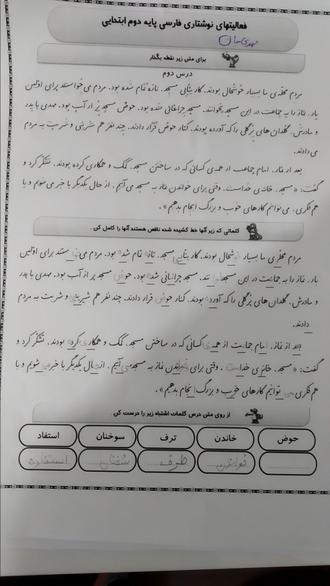 فعالیتهای نوشتاری فارسی پایه دوم ابتدایی
برای متن زیر نقطه بگذار
درس دوم
مردم محلّه‌ی ما بسیار خوشحال بودند. کار بنّایی مسجد، تازه تمام شده بود. مردم می‌خواستند برای اوّلین
بار، نماز را به جماعت در این مسجد بخوانند. مسجد چراغانی شده بود. حوض مسجد پر از آب بود. مهدی با پدر
و مادرش، گلدان‌های پرگلی را که آورده بودند، کنار حوض قرار دادند. چند نفر هم شیرینی و شربت به مردم
می‌دادند.
بعد از نماز، امام جماعت از همه‌ی کسانی که در ساختن مسجد، کمک و همکاری کرده بودند، تشکّر کرد و
گفت: « مسجد، خانه‌ی خداست. وقتی برای خواندن نماز به مسجد می‌آییم، از حال یکدیگر با خبر می‌شویم و با
هم فکری، می‌توانیم کارهای خوب و بزرگ انجام بدهیم».
کلماتی که زیر آنها خط کشیده شده ناقص هستند آنها را کامل کن.
مردم محلّه‌ی ما بسیار خوشحال بودند. کار بنّایی مسجد، تازه تمام شده بود. مردم می‌خواستند برای اوّلین
بار، نماز را به جماعت در این مسجد بخوانند. مسجد چراغانی شده بود. حوض مسجد پر از آب بود. مهدی با پدر
و مادرش، گلدان‌های پرگلی را که آورده بودند، کنار حوض قرار دادند. چند نفر هم شیرینی و شربت به مردم
دادند.
بعد از نماز، امام جماعت از همه‌ی کسانی که در ساختن مسجد، کمک و همکاری کرده بودند، تشکّر کرد و
گفت: « مسجد، خانه‌ی خداست. وقتی برای خواندن نماز به مسجد می‌آییم، از حال یکدیگر با خبر می‌شویم و با
هم فکری، می‌توانیم کارهای خوب و بزرگ انجام بدهیم».
از روی متن درس کلمات اشتباه زیر را درست کن
حوض خاندن ترف سوخنان استفاد
خواندن طرف سخنان استفاده